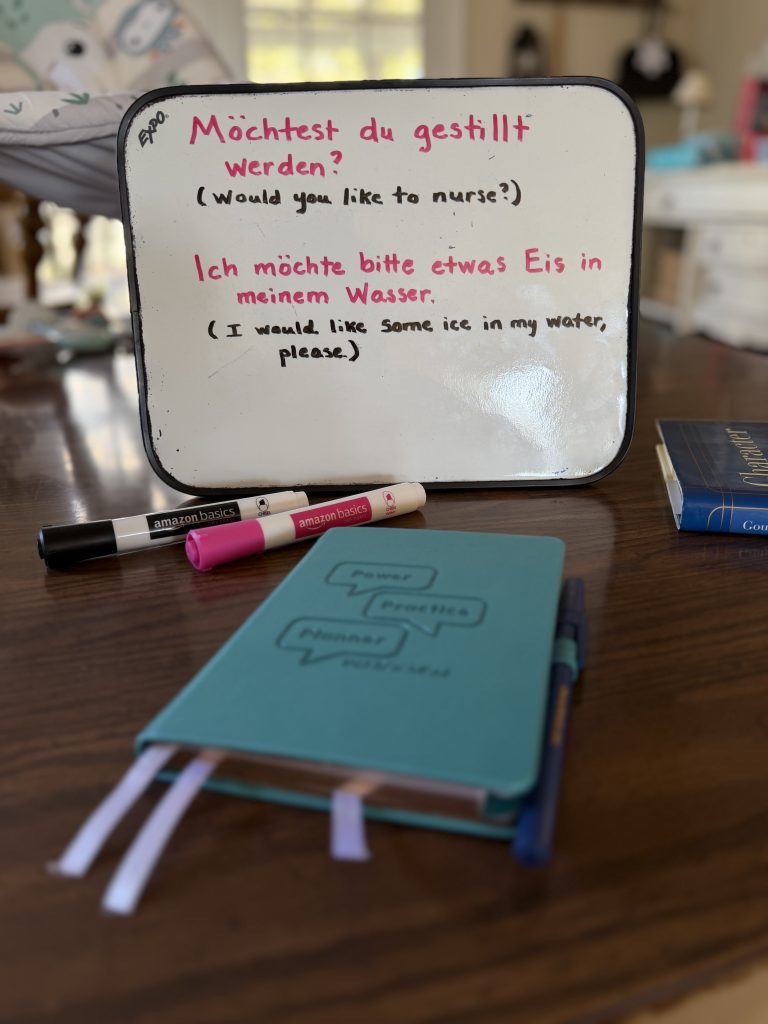 EXPO
Möchtest du gestillt
werden?
(Would you like to nurse?)
Ich möchte bitte etwas Eis in
meinem Wasser.
(I would like some ice in my water,
please.)
Character
Gou
amazon basics
amazon basics
Power
Practice
Planner